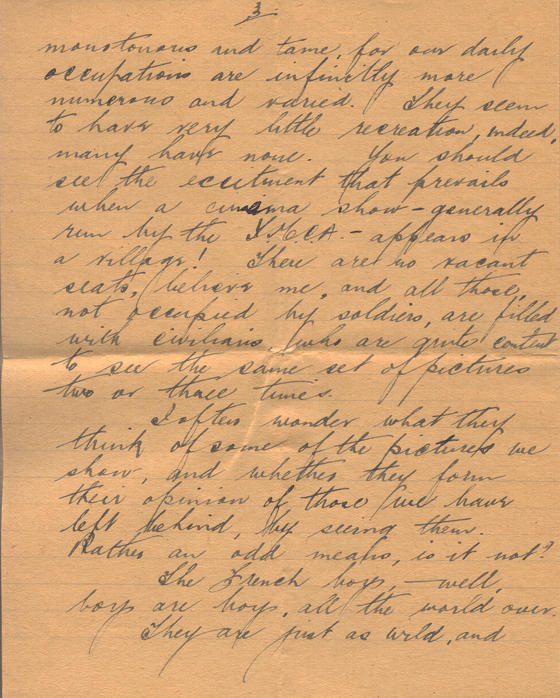 3.
monotonous and tame, for our daily
occupations are infinitly more
numerous and varied. They seem
to have very little recreation, indeed,
many have none. You should
see the excitment that prevails
when a cinema show - generally
run by the Y.M.C.A. - appears in
a village! There are no vacant
seats, believe me, and all those,
not occupied by soldiers, are filled
with civilians, who are quite content
to see the same set of pictures
two or three times.
I often wonder what they
think of some of the pictures we
show, and whether they form
their opinion of those we have
left behind, by seeing them.
Rather an odd means, is it not?
The French boys, - well,
boys are boys, all the world over.
They are just as wild, and